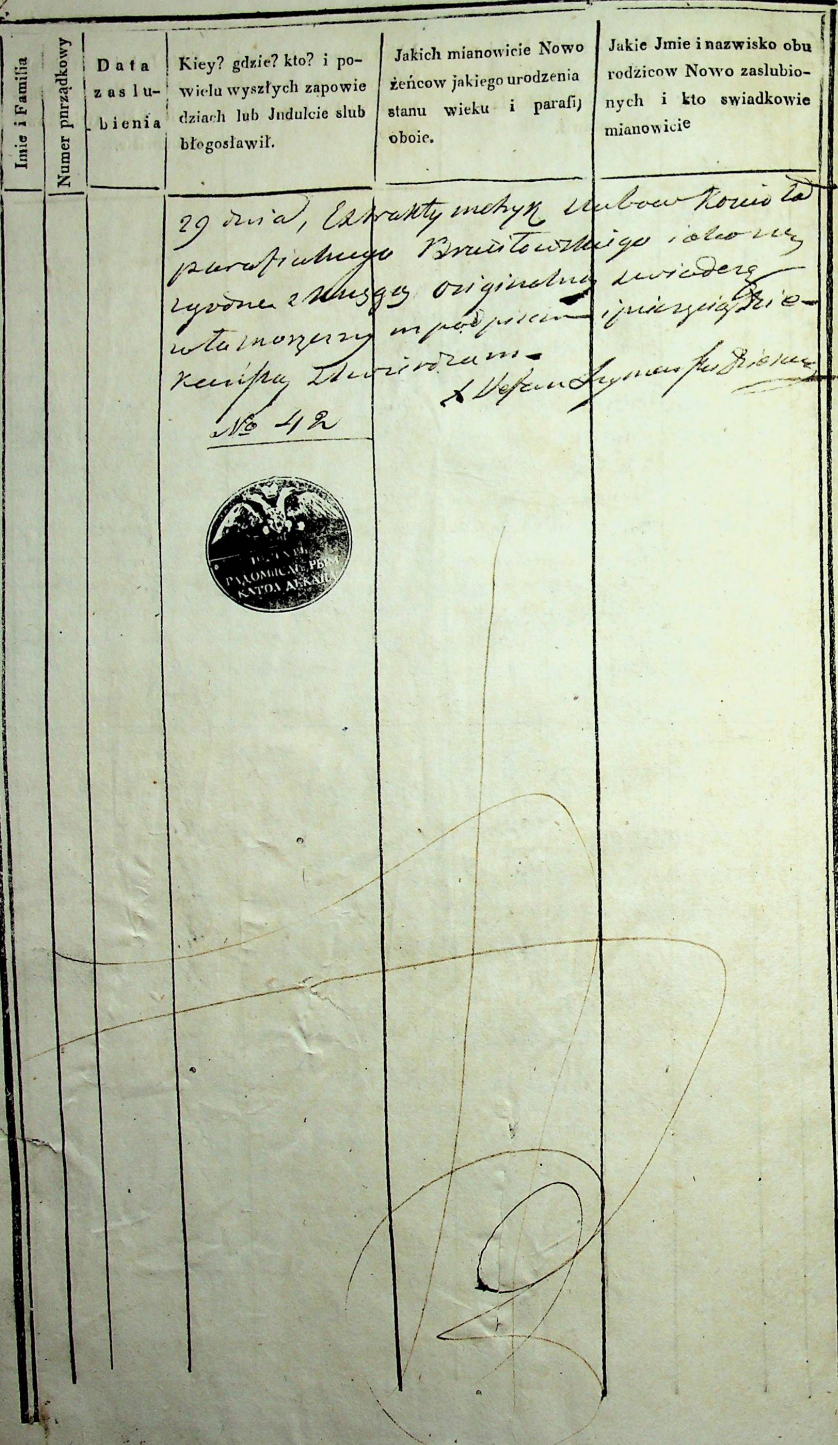 Imie i Familia
Numer pnrządkowy
Data
zaslu-
bienia
Kiey? gdzie? kto? i po-
wielu wyszłych zapowie
dziach lub Jndulcie slub
błogosławił.
Jakich mianowicie Nowo
żeńcow jakiego urodzenia
stanu wieku i parafij
oboie.
Jakie Jmie i nazwisko obu
rodzicow Nowo zaslubio-
nych i kto swiadkowie
mianowicie
29 dnia, Extrakty metryk slubow Koscioła
parafialnego Brusiłowskiego iako są
zgodne z Xsięgą originalną swiadczę
własnoręcznym podpisem i pieczęcią Dzie-
kańską stwierdzam
X Stefan Dziekan
№ 42
РАДОМЫСЛ РЫМ
КАТОЛ ДЕКАН